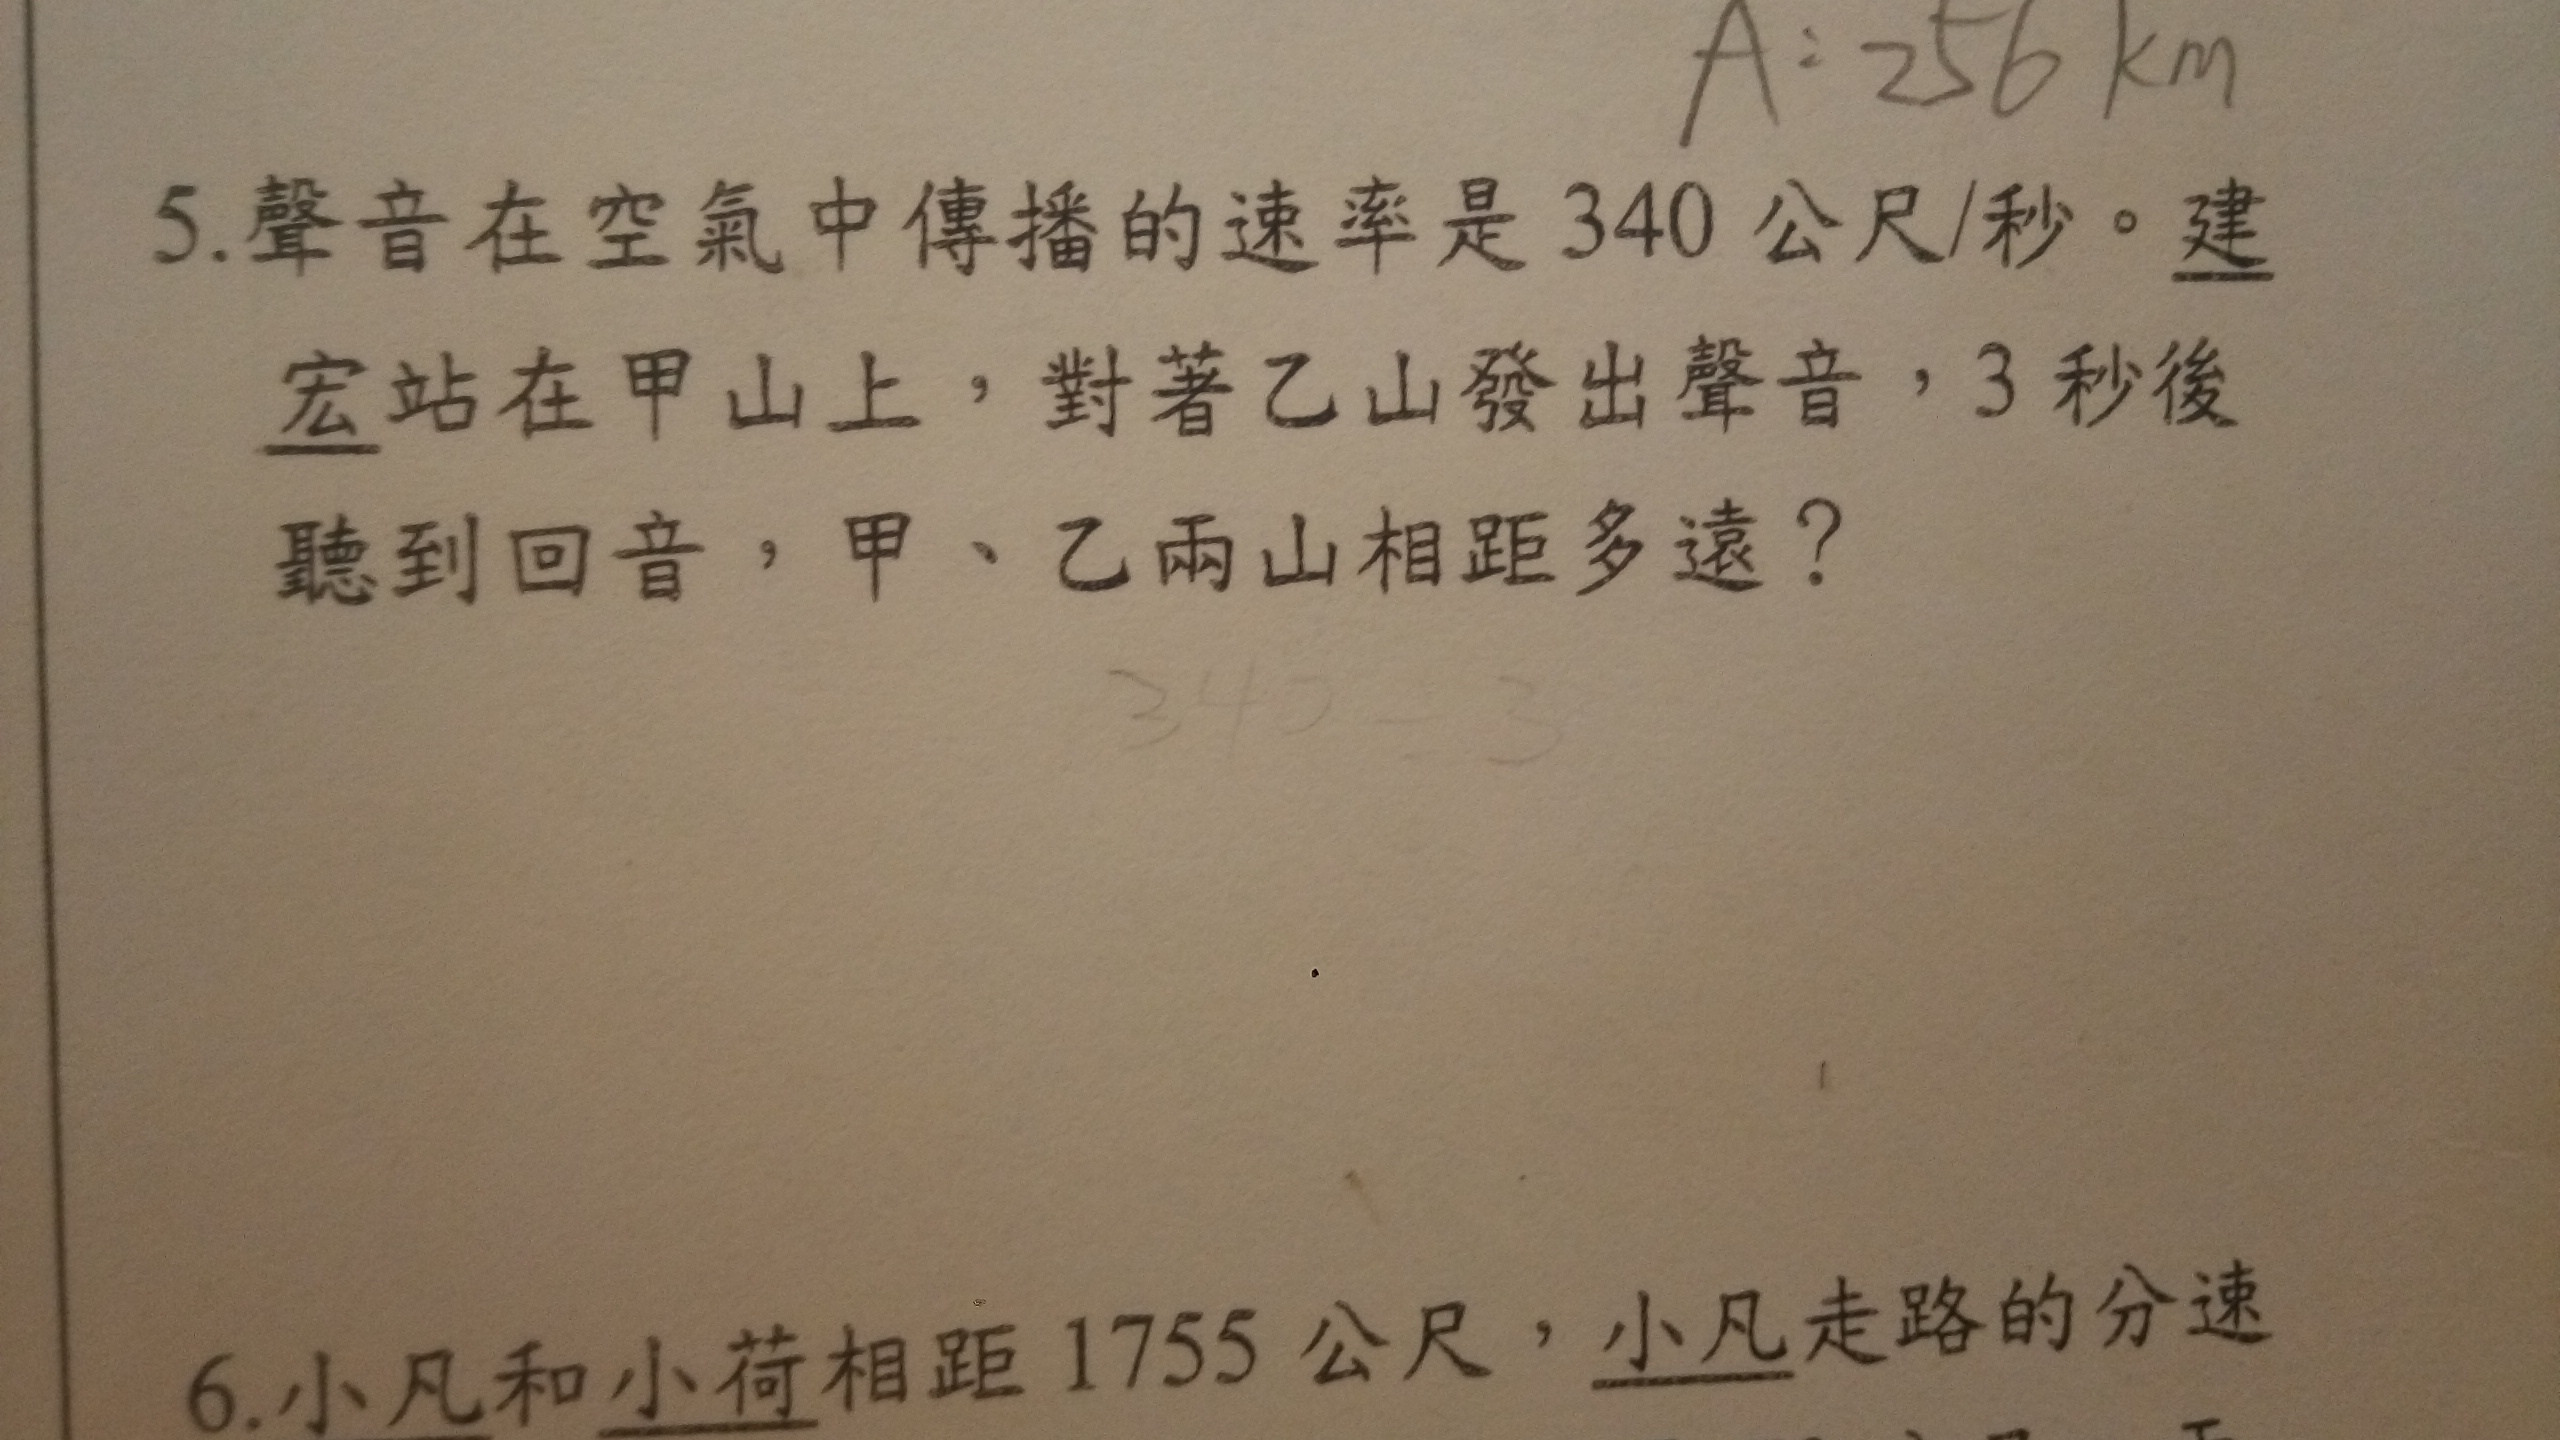 A：256 km
5.聲音在空氣中傳播的速率是 340 公尺/秒。建
宏站在甲山上，對著乙山發出聲音，3 秒後
聽到回音，甲、乙兩山相距多遠？
340 3
6.小凡和小荷相距 1755 公尺，小凡走路的分速